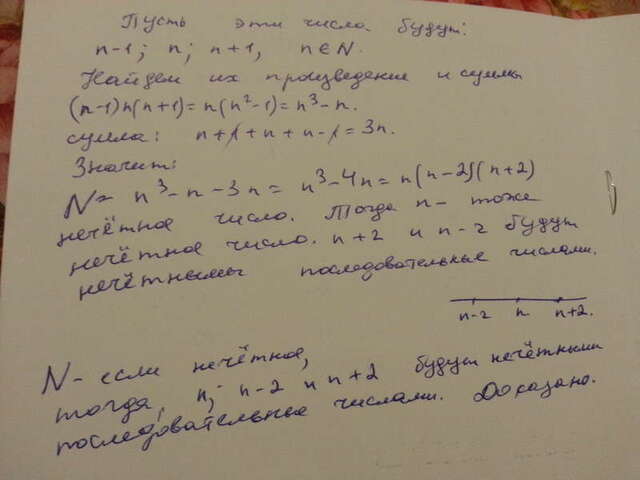 Пусть эти числа будут:
n-1; n; n+1, n∈N.
Найдем их произведение и суммы
(n-1)n(n+1)=n(n²-1)=n³-n.
сумма: n+1+n+n-1=3n.
Значит:
N= n³-n-3n= n³-4n= n(n-2)(n+2)
нечётное число. Тогда n- тоже
нечётное число. n+2 и n-2 будут
нечётными последовательные числами.
n-2 n n+2.
N- если нечётное,
тогда, n; n-2 и n+2 будут нечётными
последовательные числами. Доказано.